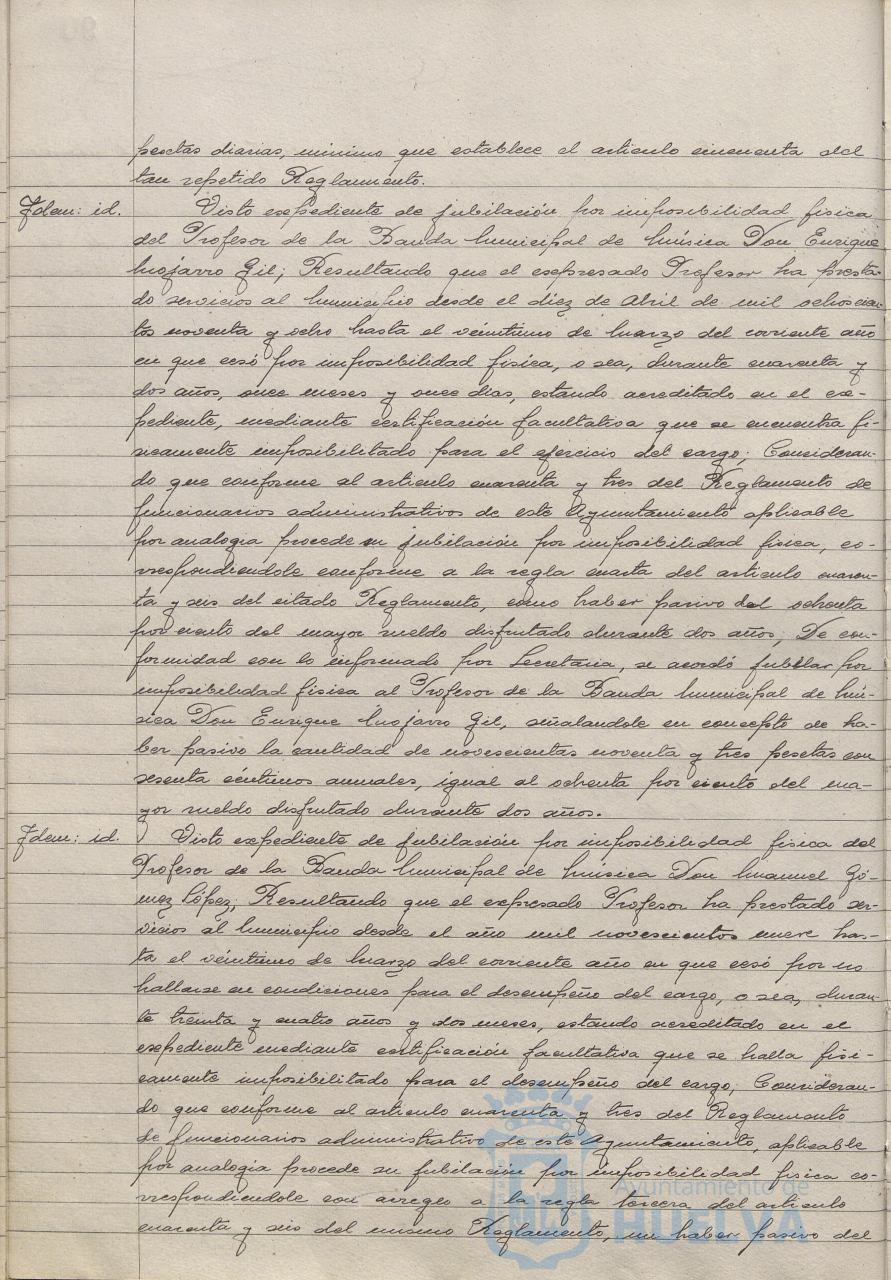 pesetas diarias, minimo que establece el articulo cincuenta del
tan repetido Reglamento.
Idem: id. Visto expediente de jubilación por imposibilidad fisica
del Profesor de la Banda Municipal de Música Don Enrique
Mojarro Gil; Resultando que el expresado Profesor ha presta-
do servicios al Municipio desde el diez de Abril de mil ochocien-
tos noventa y ocho hasta el veintiuno de Marzo del corriente año
en que cesó por imposibilidad fisica, o sea, durante cuarenta y
dos años, once meses y once dias, estando acreditado en el ex-
pediente, mediante certificación facultativa que se encuentra fi-
sicamente imposibilitado para el ejercicio del cargo; Consideran-
do que conforme al articulo cuarenta y tres del Reglamento de
funcionarios administrativos de este Ayuntamiento aplicable
por analogia procede su jubilación por imposibilidad fisica, co-
rrespondiendole conforme a la regla cuarta del articulo cuaren-
ta y seis del citado Reglamento, como haber pasivo del ochenta
por ciento del mayor sueldo disfrutado durante dos años; De con-
formidad con lo informado por Secretaria, se acordó jubilar por
imposibilidad fisica al Profesor de la Banda Municipal de Mú-
sica Don Enrique Mojarro Gil, señalandole en concepto de ha-
ber pasivo la cantidad de novescientas noventa y tres pesetas con
sesenta céntimos anuales, igual al ochenta por ciento del ma-
yor sueldo disfrutado durante dos años.
Idem: id. Visto expediente de jubilación por imposibilidad fisica del
Profesor de la Banda Municipal de Música Don Manuel Gó-
mez López; Resultando que el expresado Profesor ha prestado ser-
vicios al Municipio desde el año mil novescientos nueve has-
ta el veintiuno de Marzo del corriente año en que cesó por no
hallarse en condiciones para el desempeño del cargo, o sea, duran-
te treinta y cuatro años y dos meses, estando acreditado en el
expediente mediante certificación facultativa que se halla fisi-
camente imposibilitado para el desempeño del cargo; Consideran-
do que conforme al articulo cuarenta y tres del Reglamento
de funcionarios administrativo de este Ayuntamiento, aplicable
por analogia procede su jubilación por imposibilidad fisica co-
rrespondiendole con arreglo a la regla tercera del articulo
cuarenta y seis del mismo Reglamento, un haber pasivo del
Ayuntamiento de
HUELVA